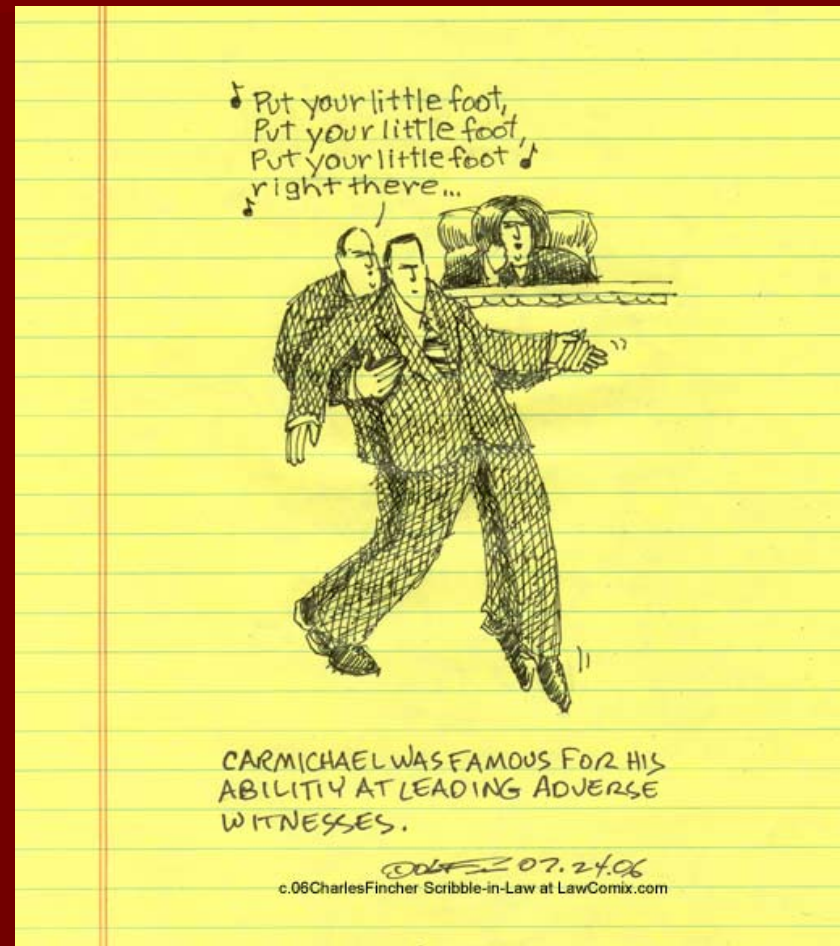 ♪ Put your little foot,
Put your little foot,
Put your little foot ♪
♪ right there...
CARMICHAEL WAS FAMOUS FOR HIS
ABILITIY AT LEADING ADVERSE
WITNESSES.
07.24.06
c.06CharlesFincher Scribble-in-Law at LawComix.com